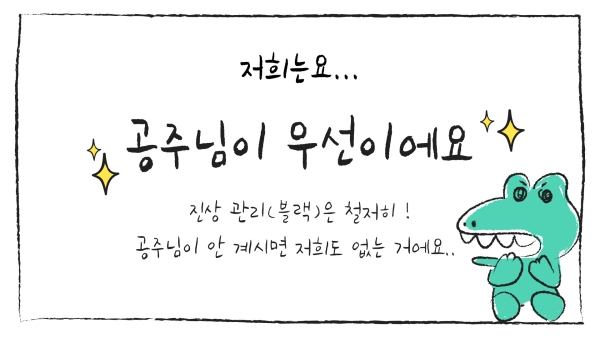 저희는요...
공주님이 우선이에요
진상 관리(블랙)은 철저히 !
공주님이 안 계시면 저희도 없는 거에요..